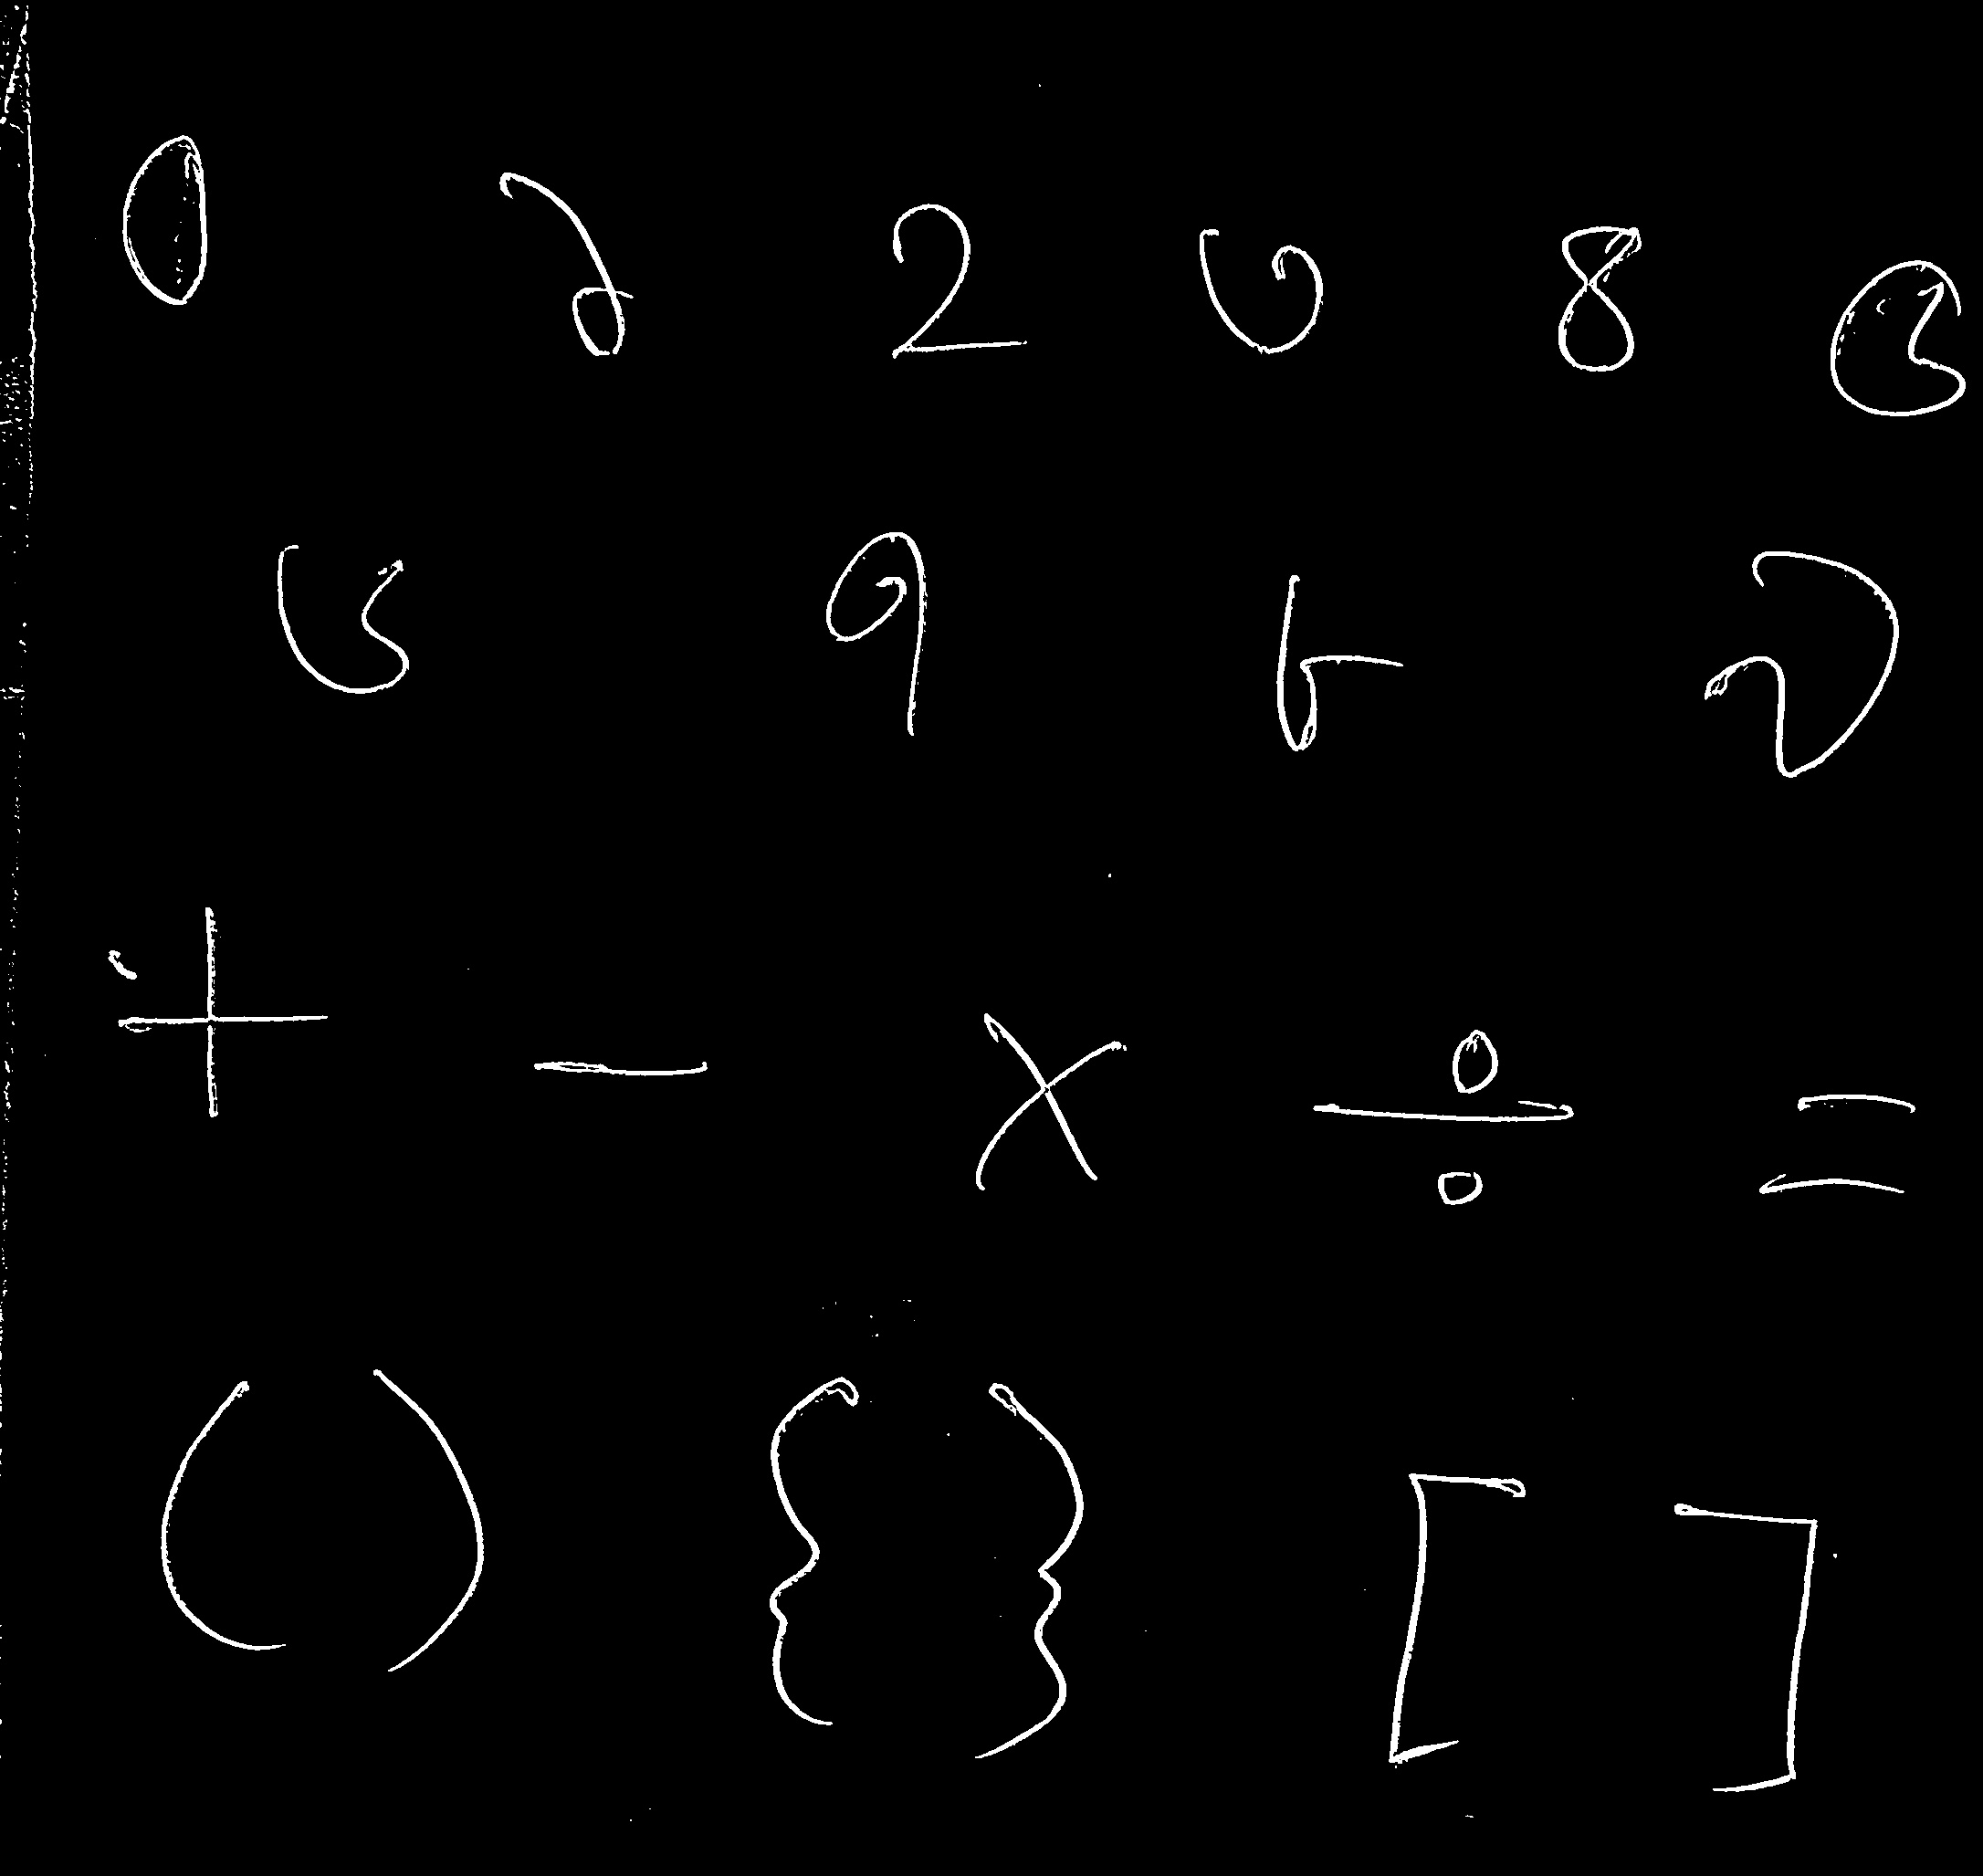 ০ ১ ২ ৩ ৪ ৫
৬ ৭ ৮ ৯
+ - × ÷ =
( ) { } [ ]